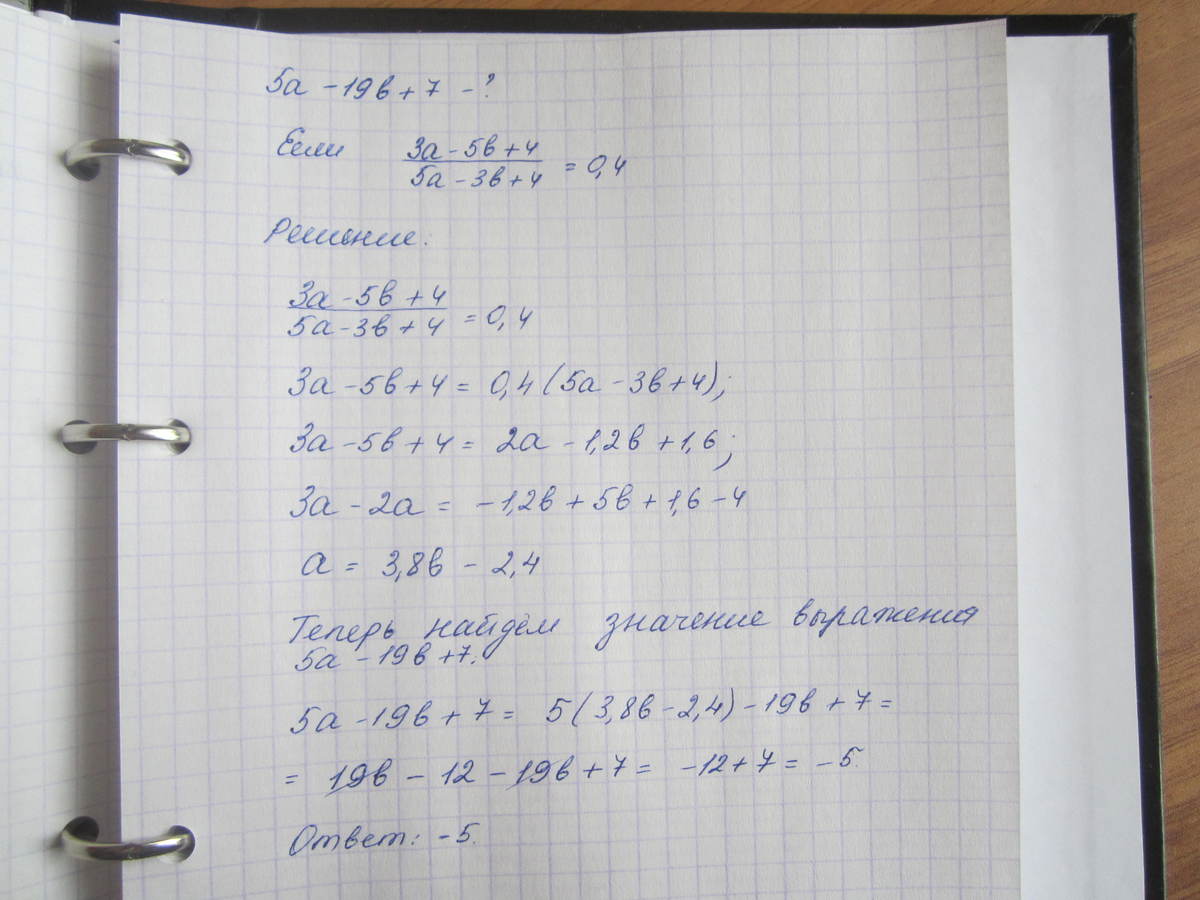 5а - 19в + 7 - ?
Если (3а - 5в + 4)/(5а - 3в + 4) = 0,4
Решение:
(3а - 5в + 4)/(5а - 3в + 4) = 0,4
3а - 5в + 4 = 0,4 (5а - 3в + 4);
3а - 5в + 4 = 2а - 1,2в + 1,6;
3а - 2а = -1,2в + 5в + 1,6 - 4
а = 3,8в - 2,4
Теперь найдём значение выражения
5а - 19в + 7.
5а - 19в + 7 = 5(3,8в - 2,4) - 19в + 7 =
= 19в - 12 - 19в + 7 = -12 + 7 = -5.
Ответ: -5.